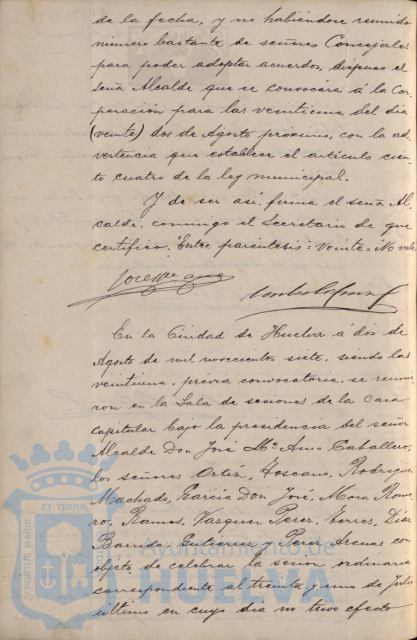 de la fecha, y no habiéndose reunido
número bastante de señores Concejales
para poder adoptar acuerdos, dispuso el
Señor Alcalde que se convocara á la Cor
peración para las veintiuna del dia
(veinte) dos de Agosto próximo, con la ad
vertencia que establece el artículo cien
to cuatro de la ley municipal.
Y de ser así, firma el señor Al
calde, conmigo el Secretario de que
certifico. Entre paréntesis = veinte = No vale
En la Ciudad de Huelva á dos de
Agosto de mil novecientos siete, siendo las
veintiuna, previa convocatoria, se reunie
ron en la Sala de sesiones de la casa
capitular bajo la presidencia del señor
Alcalde Don José Mª Amo Caballero,
los señores Ortiz, Toscano, Rodriguez
Machado, Garcia Don José, Mora Rome
ro, Ramos, Vazquez Perez, Torres, Diaz
Barrida, Gutierrez y Perez Arenas con
objeto de celebrar la sesión ordinaria
correspondiente al treinta y uno de Julio
último en cuyo día no tuvo efecto
PORTUS MARIS
ET TERRAE
Ayuntamiento de
HUELVA